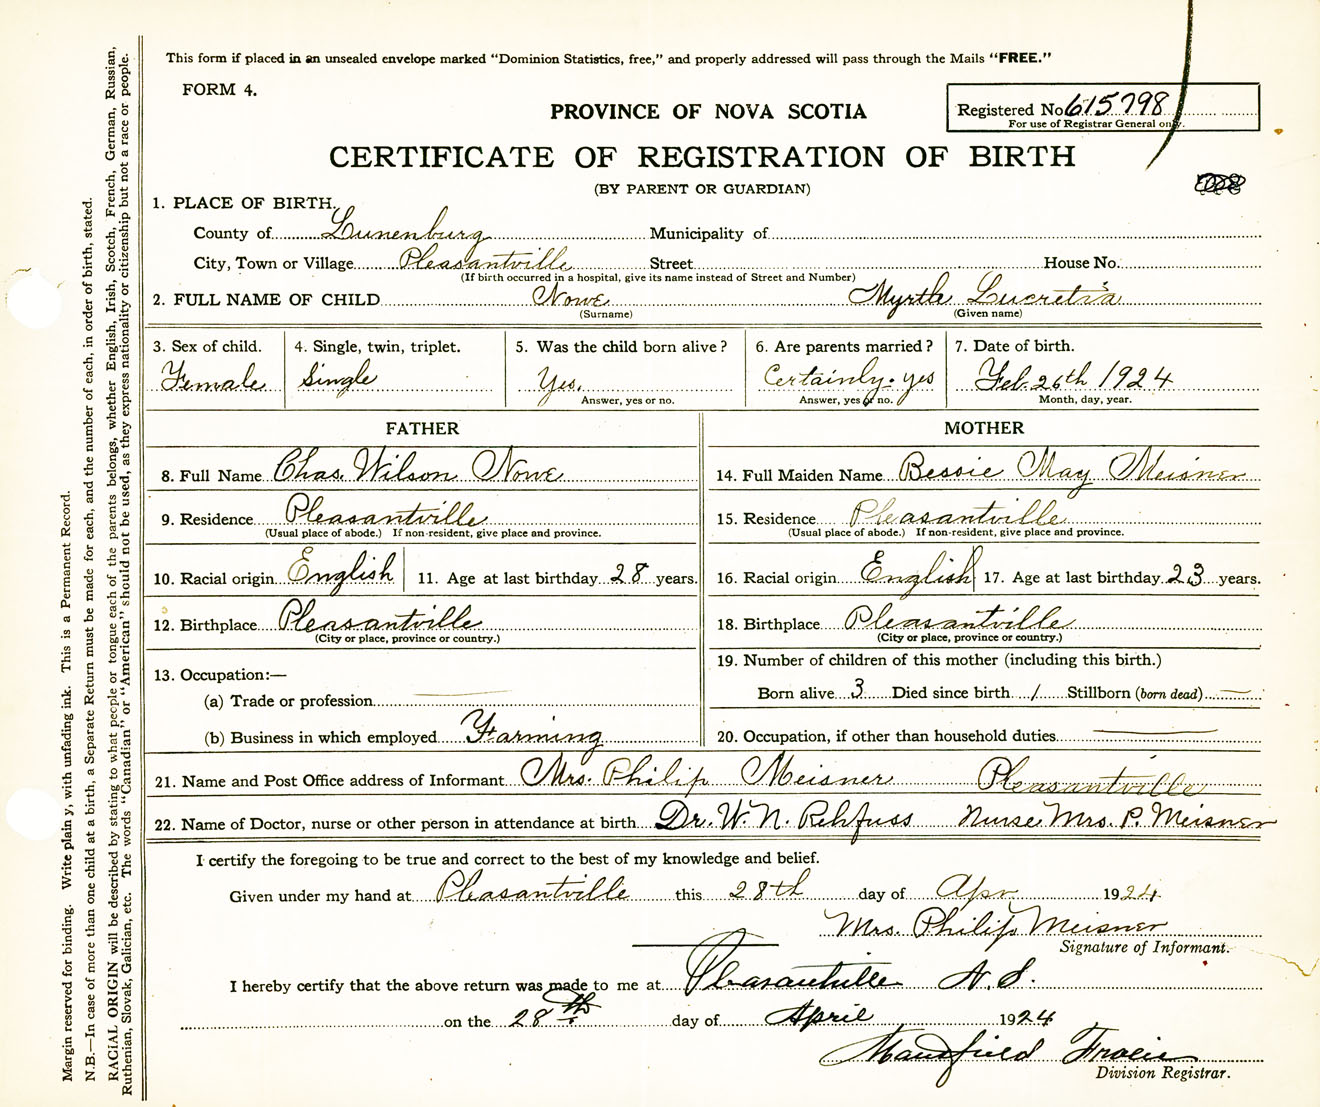 This form if placed in an unsealed envelope marked “Dominion Statistics, free,” and properly addressed will pass through the Mails “FREE.”
FORM 4.
PROVINCE OF NOVA SCOTIA
Registered No 615798
For use of Registrar General only.
CERTIFICATE OF REGISTRATION OF BIRTH
(BY PARENT OR GUARDIAN)
1. PLACE OF BIRTH.
County of Lunenburg Municipality of
City, Town or Village Pleasantville Street House No.
(If birth occurred in a hospital, give its name instead of Street and Number)
2. FULL NAME OF CHILD Nowe Myrtle Lucretia
(Surname) (Given name)
3. Sex of child. 4. Single, twin, triplet. 5. Was the child born alive? 6. Are parents married? 7. Date of birth.
Female Single Yes. Certainly. yes Feb. 26th 1924
Answer, yes or no. Answer, yes or no. Month, day, year.
FATHER MOTHER
8. Full Name Chas. Wilson Nowe 14. Full Maiden Name Bessie May Meisner
9. Residence Pleasantville 15. Residence Pleasantville
(Usual place of abode.) If non-resident, give place and province. (Usual place of abode.) If non-resident, give place and province.
10. Racial origin English 11. Age at last birthday 28 years. 16. Racial origin English 17. Age at last birthday 23 years.
12. Birthplace Pleasantville 18. Birthplace Pleasantville
(City or place, province or country.) (City or place, province or country.)
13. Occupation:— 19. Number of children of this mother (including this birth.)
(a) Trade or profession Born alive 3 Died since birth 1 Stillborn (born dead)
(b) Business in which employed Farming 20. Occupation, if other than household duties
21. Name and Post Office address of Informant Mrs. Philip Meisner Pleasantville
22. Name of Doctor, nurse or other person in attendance at birth Dr. W. N. Rehfuss Nurse Mrs. P. Meisner
I certify the foregoing to be true and correct to the best of my knowledge and belief.
Given under my hand at Pleasantville this 28th day of Apr 1924
Mrs. Philip Meisner
Signature of Informant.
I hereby certify that the above return was made to me at Pleasantville N. S.
on the 28th day of April 1924
Mansfield
Division Registrar.
Margin reserved for binding. Write plainly, with unfading ink. This is a Permanent Record.
N.B.—In case of more than one child at a birth, a Separate Return must be made for each, and the number of each, in order of birth, stated.
RACIAL ORIGIN will be described by stating to what people or tongue each of the parents belongs, whether English, Irish, Scotch, French, German, Russian,
Ruthenian, Slovak, Galician, etc. The words “Canadian” or “American” should not be used, as they express nationality or citizenship but not a race or people.